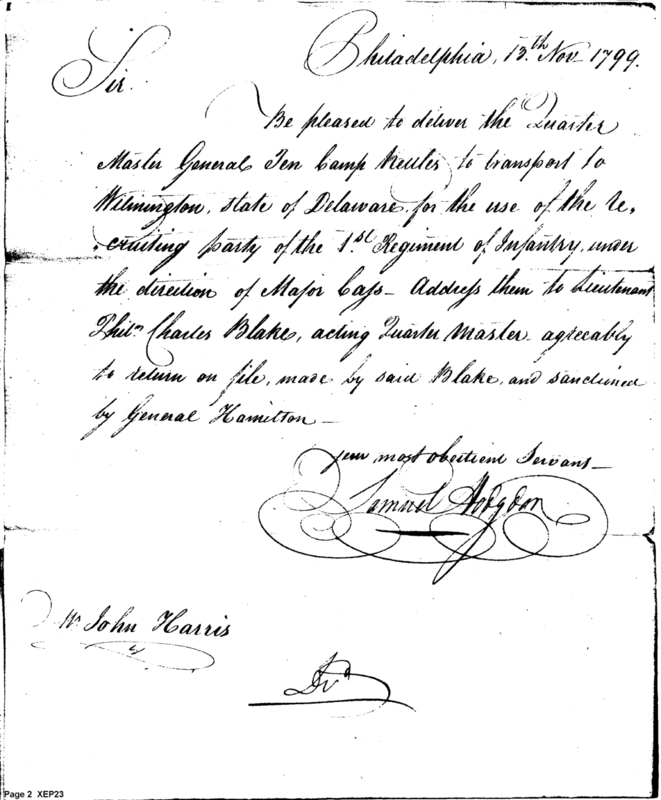 Philadelphia, 13.th Nov 1799.
Sir.
Be pleased to deliver the Quarter
Master General Ten Camp Kettles to transport to
Wilmington, state of Delaware, for the use of the Re,
,cruiting party of the 1.st Regiment of Infantry, under
the direction of Major Cass – Address them to Lieutenant
Charles Blake, acting Quarter Master, agreeably
to return on file, made by said Blake, and sanctioned
by General Hamilton –
your most obedient Servant –
Samuel Hodgdon
Mr John Harris
Page 2 XEP23